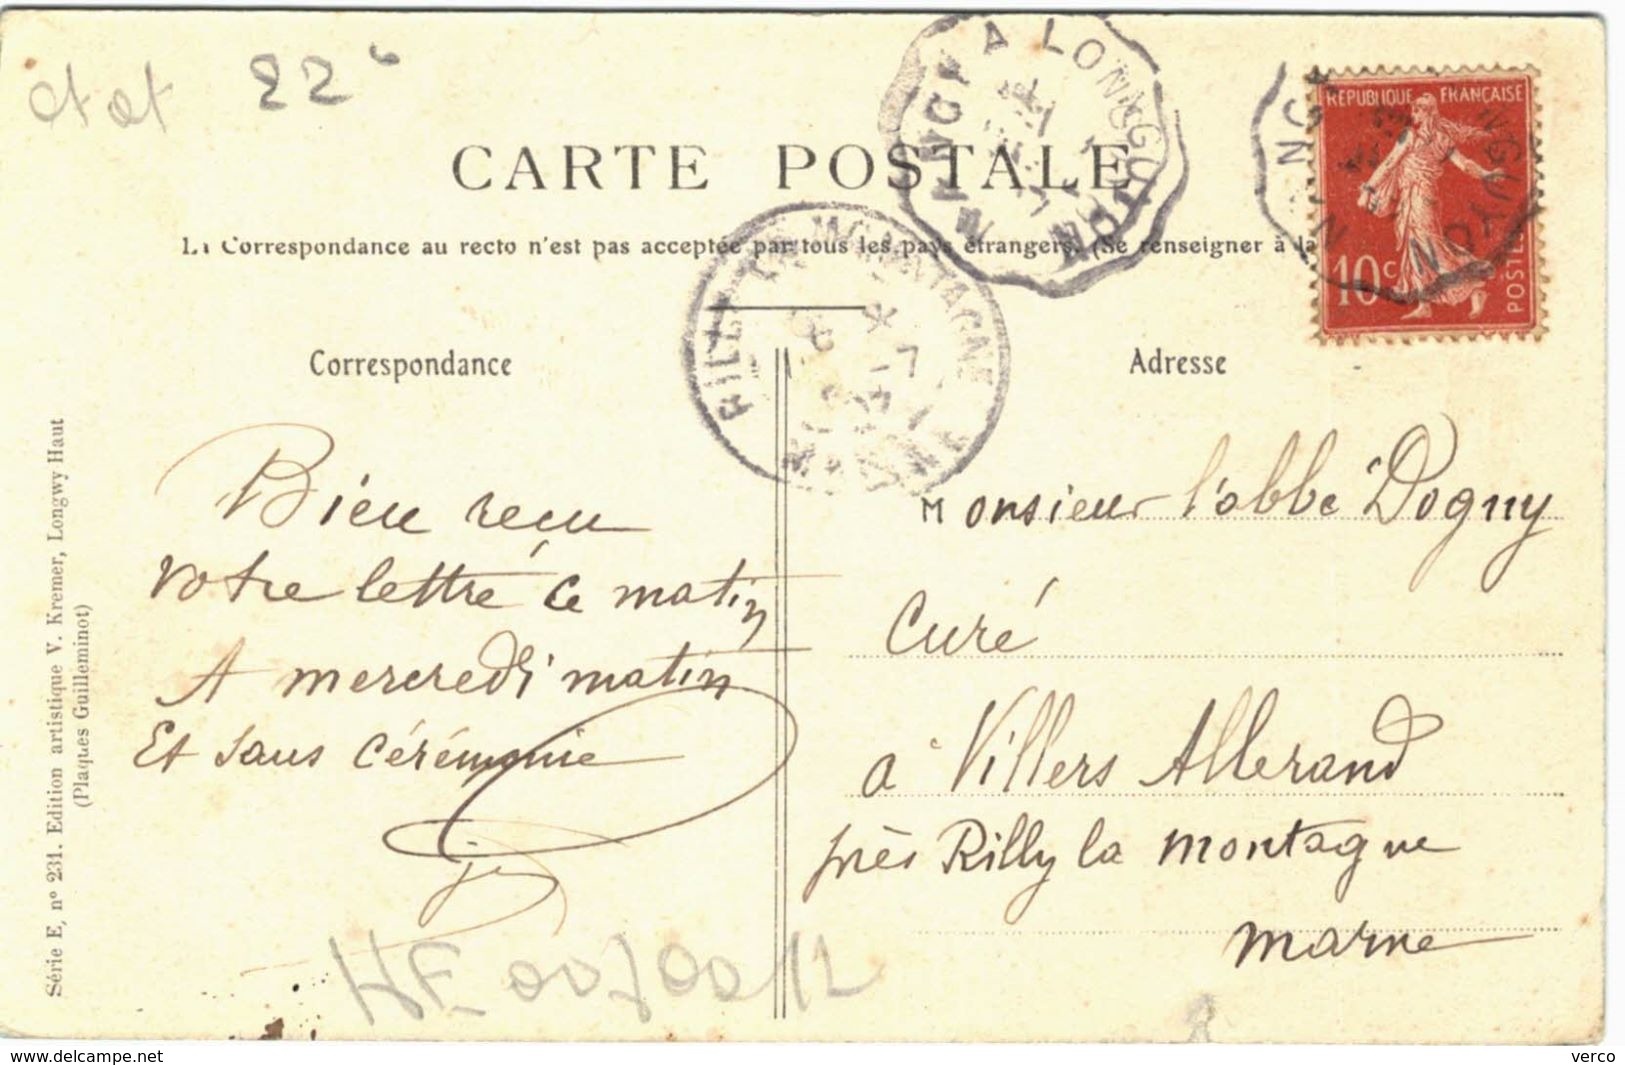 22
CARTE POSTALE
NANCY A LONGUYON
RÉPUBLIQUE FRANÇAISE
10c
POSTES
La Correspondance au recto n'est pas acceptée par tous les pays étrangers. (Se renseigner à la
RILLY LA MONTAGNE
MARNE
Correspondance
Adresse
Bien reçu
votre lettre ce matin
A mercredi matin
Et sans cérémonie
Monsieur l'abbé Dogny
Curé
à Villers Allerand
près Rilly la montagne
marne
Série E, nº 231. Edition artistique V. Kremer, Longwy Haut
(Plaques Guilleminot)
© www.delcampe.net
verco